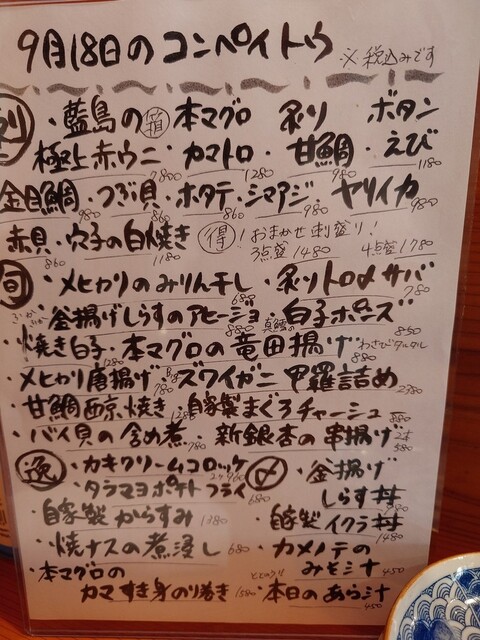 9月18日のコンペイトウ ※税込みです
刺 ・藍島の箱 本マグロ 炙り ボタン
極上赤ウニ 7800 ・カマトロ 1280 ・甘鯛 980 ・えび 1180
金目鯛 980 ・つぶ貝 860 ・ホタテ 860 ・シマアジ 980 ヤリイカ 980
赤貝 860 ・穴子の白焼き 1180 得! おまかせ刺盛り! 3点盛 1480 4点盛 1780
旬 ・メヒカリのみりん干し 680 ・炙りトロ〆サバ 780
釜揚げしらすのアヒージョ 880 真鱈の 白子ポン酢 850
・焼き白子 1280 ・本マグロの竜田揚げ わさびタルタル 880
・メヒカリ唐揚げ 780 Big ズワイガニ甲羅詰め 2780
・甘鯛西京焼き 自家製まぐろチャーシュー 880
・バイ貝の含め煮 780 ・新銀杏の串揚げ 2本 580
逸 ・カキクリームコロッケ 2ケ 960 〆 ・釜揚げ
・タラマヨポテトフライ 680 しらす丼
・自家製からすみ 1380 ・自家製イクラ丼 1480
・焼ナスの煮浸し 680 ・カメノテの
・本マグロの みそ汁 450
カマすき身のり巻き 1580 ・本日のあら汁 450